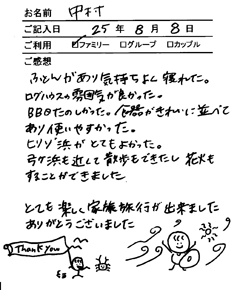 お名前 中村
ご記入日 25年 8月 8日
ご利用 ☑ファミリー □グループ □カップル
ご感想
ふとんがあり気持ちよく寝れた。
ログハウスの雰囲気が良かった。
BBQたのしかった。食器がきれいに並べて
あり使いやすかった。
ヒリゾ浜がとてもよかった。
弓ヶ浜も近して散歩もできたし 花火も
することができました。
とても楽しく家族旅行が出来ました
ありがとうございました
Thank you